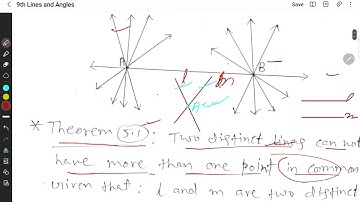 9th Lines and Angles
Save
A
B
l
m
A
l
m
* Theorem 5.1 : Two distinct lines can not
have more than one point in common
Given that : l and m are two distinct